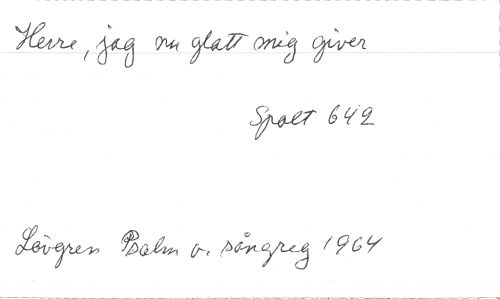 Herre, jag nu glatt mig giver
Spalt 642
Lövgren Psalm o. sångreg 1964